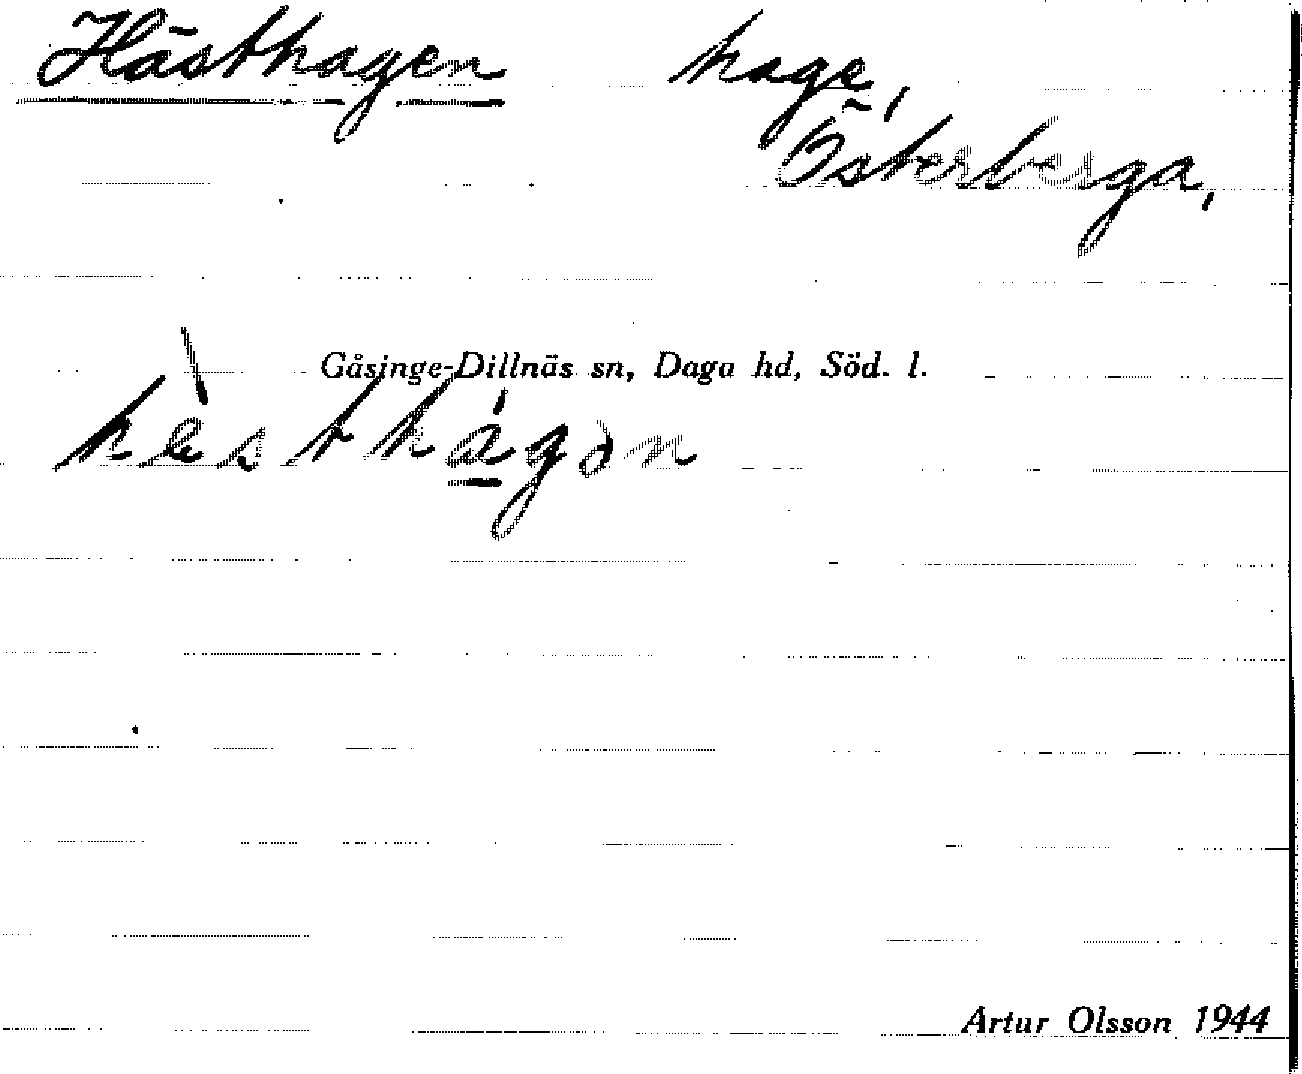 Hästhagen hage,
Österberga,
Gåsinge-Dillnäs sn, Daga hd, Söd. l.
hὲsthágən
Artur Olsson 1944